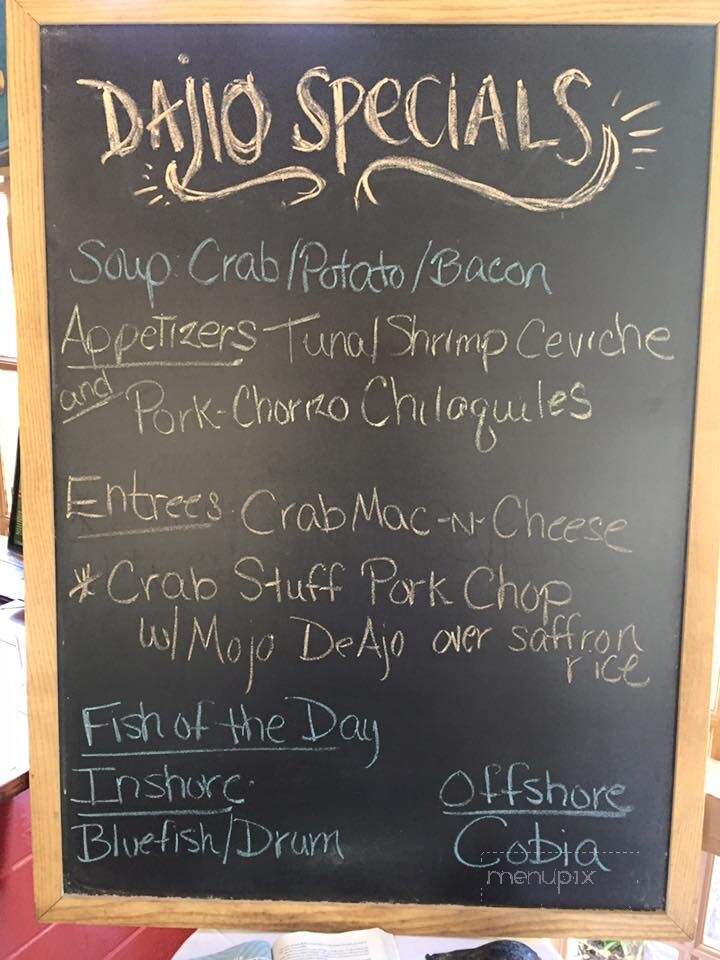 DAJIO SPECIALS
Soup: Crab/Potato/Bacon
Appetizers Tuna/Shrimp Ceviche
and Pork-Chorizo Chilaquiles
Entrees: Crab Mac-N-Cheese
*Crab Stuff Pork Chop
w/ Mojo DeAjo over saffron
rice
Fish of the Day
Inshore Offshore
Bluefish/Drum Cobia
menupix